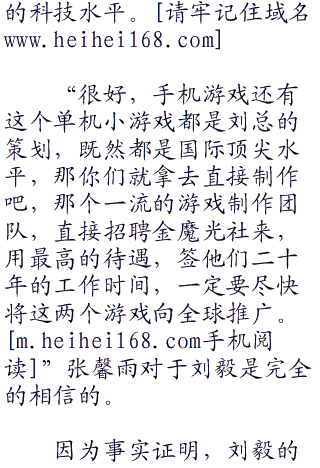 的科技水平。[请牢记住域名
www.heihei168.com]
“很好，手机游戏还有
这个单机小游戏都是刘总的
策划，既然都是国际顶尖水
平，那你们就拿去直接制作
吧，那个一流的游戏制作团
队，直接招聘金魔光社来，
用最高的待遇，签他们二十
年的工作时间，一定要尽快
将这两个游戏向全球推广。
[m.heihei168.com手机阅
读]”张馨雨对于刘毅是完全
的相信的。
因为事实证明，刘毅的